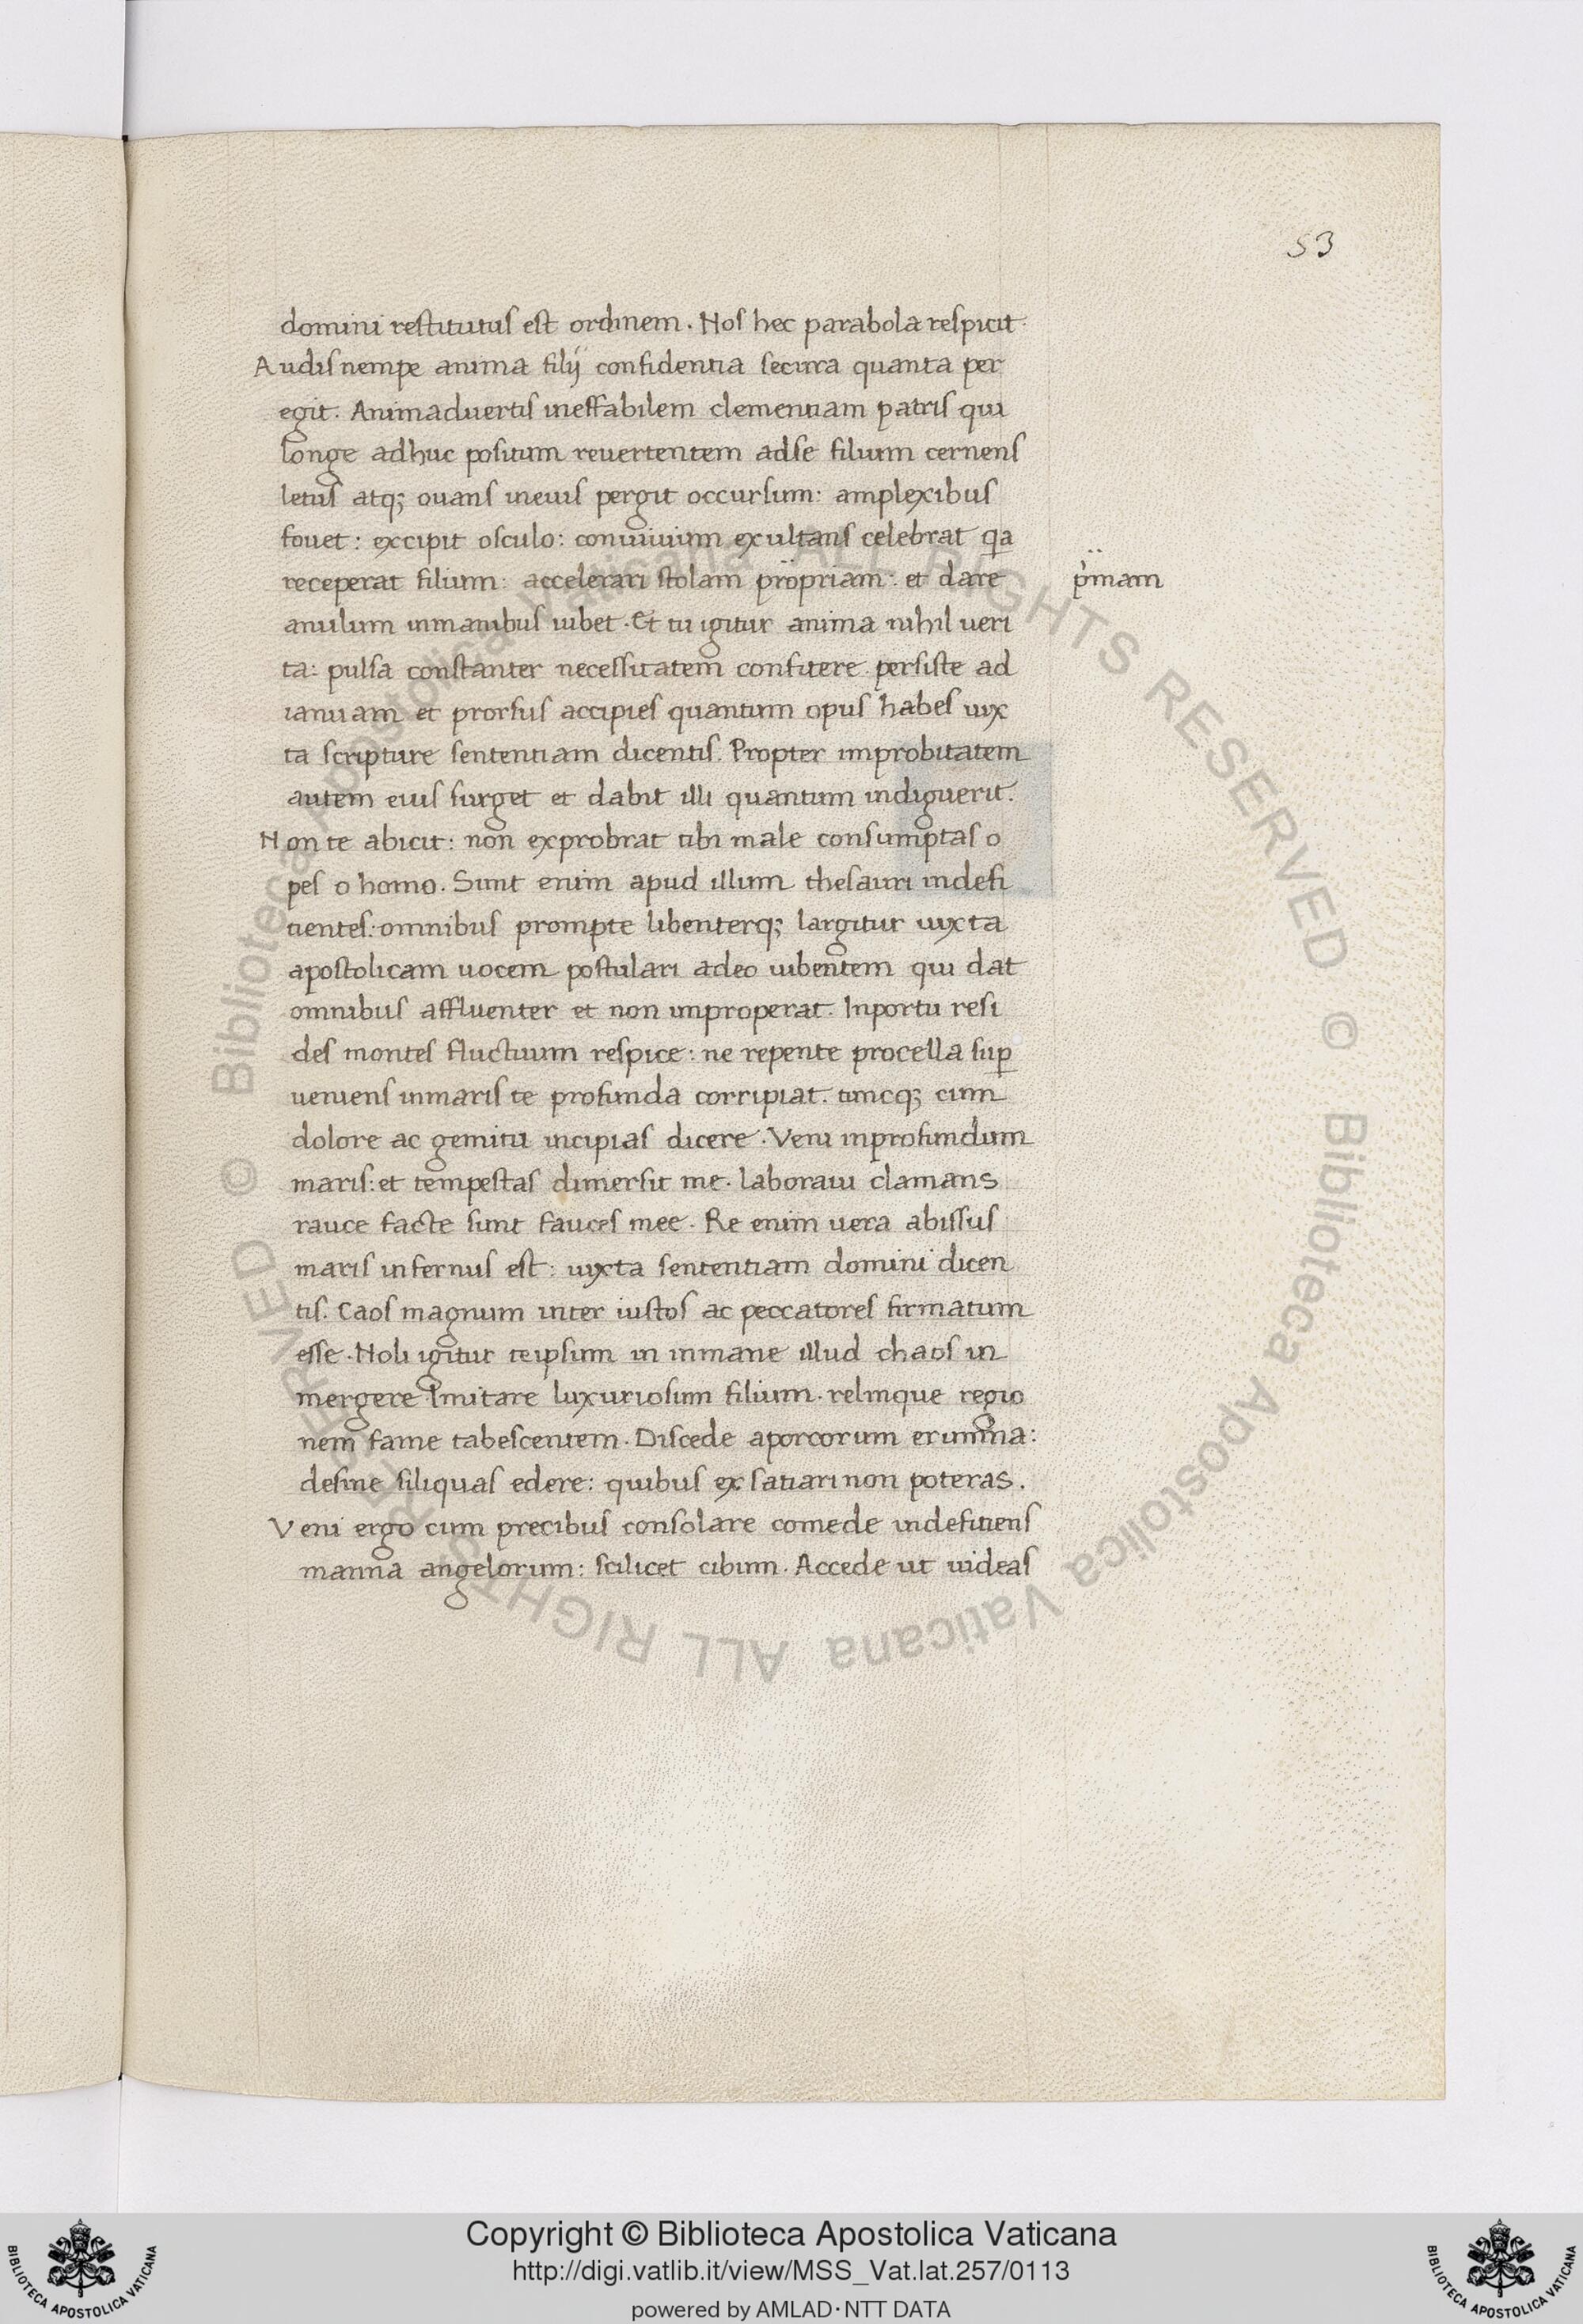 53
domini restitutus est ordinem. Nos hec parabola respicit.
Audis nempe anima filij confidentia secura quanta per
egit. Animaduertis ineffabilem clementiam patris qui
longe adhuc positum reuertentem adse filium cernens
letus atq; ouans ineius pergit occursum: amplexibus
fouet: excipit osculo: conuiuium exultans celebrat qa
receperat filium: accelerari stolam propriam: et dare
p̈rimam
anulum inmanibus iubet. Et tu igitur anima nihil ueri
ta: pulsa constanter necessitatem confitere persiste ad
ianuam et prorsus accipies quantum opus habes iux
ta scripture sententiam dicentis. Propter improbitatem
autem eius surget et dabit illi quantum indiguerit.
Non te abicit: non exprobrat tibi male consumptas o
pes o homo. Sunt enim apud illum thesauri indefi
tientes: omnibus prompte libenterq; largitur iuxta
apostolicam uocem postulari adeo iubentem qui dat
omnibus affluenter et non improperat. Inportu resi
des montes fluctuum respice: ne repente procella sup̱
ueniens inmaris te profunda corripiat. tuncq; cum
dolore ac gemitu incipias dicere. Veni inprofundum
maris: et tempestas dimersit me. laboraui clamans
rauce facte sunt fauces mee. Re enim uera abissus
maris infernus est: iuxta sententiam domini dicen
tis. Caos magnum inter iustos ac peccatores firmatum
esse. Noli igitur teipsum in inmane illud chaos in
mergere Imitare luxuriosum filium. relinque regio
nem fame tabescentem. Discede aporcorum erumna:
desine siliquas edere: quibus exsatiari non poteras.
Veni ergo cum precibus consolare comede indefitiens
manna angelorum: scilicet cibum. Accede ut uideas
© Biblioteca Apostolica Vaticana ALL RIGHTS RESERVED
© Biblioteca Apostolica Vaticana ALL RIGHTS RESERVED
Copyright © Biblioteca Apostolica Vaticana
http://digi.vatlib.it/view/MSS_Vat.lat.257/0113
powered by AMLAD·NTT DATA
BIBLIOTECA APOSTOLICA VATICANA
BIBLIOTECA APOSTOLICA VATICANA